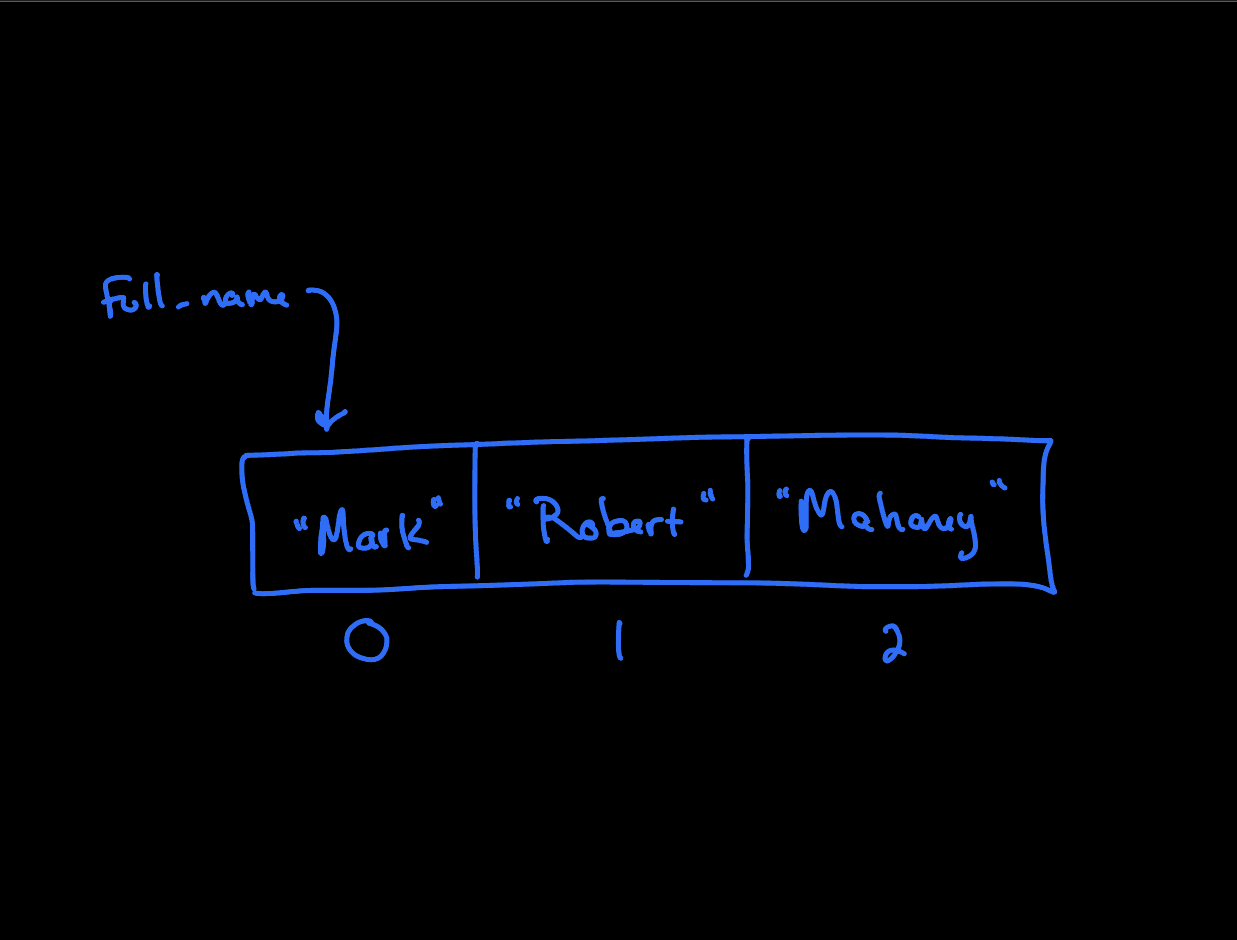 full_name
"Mark" "Robert" "Mahaney"
0 1 2